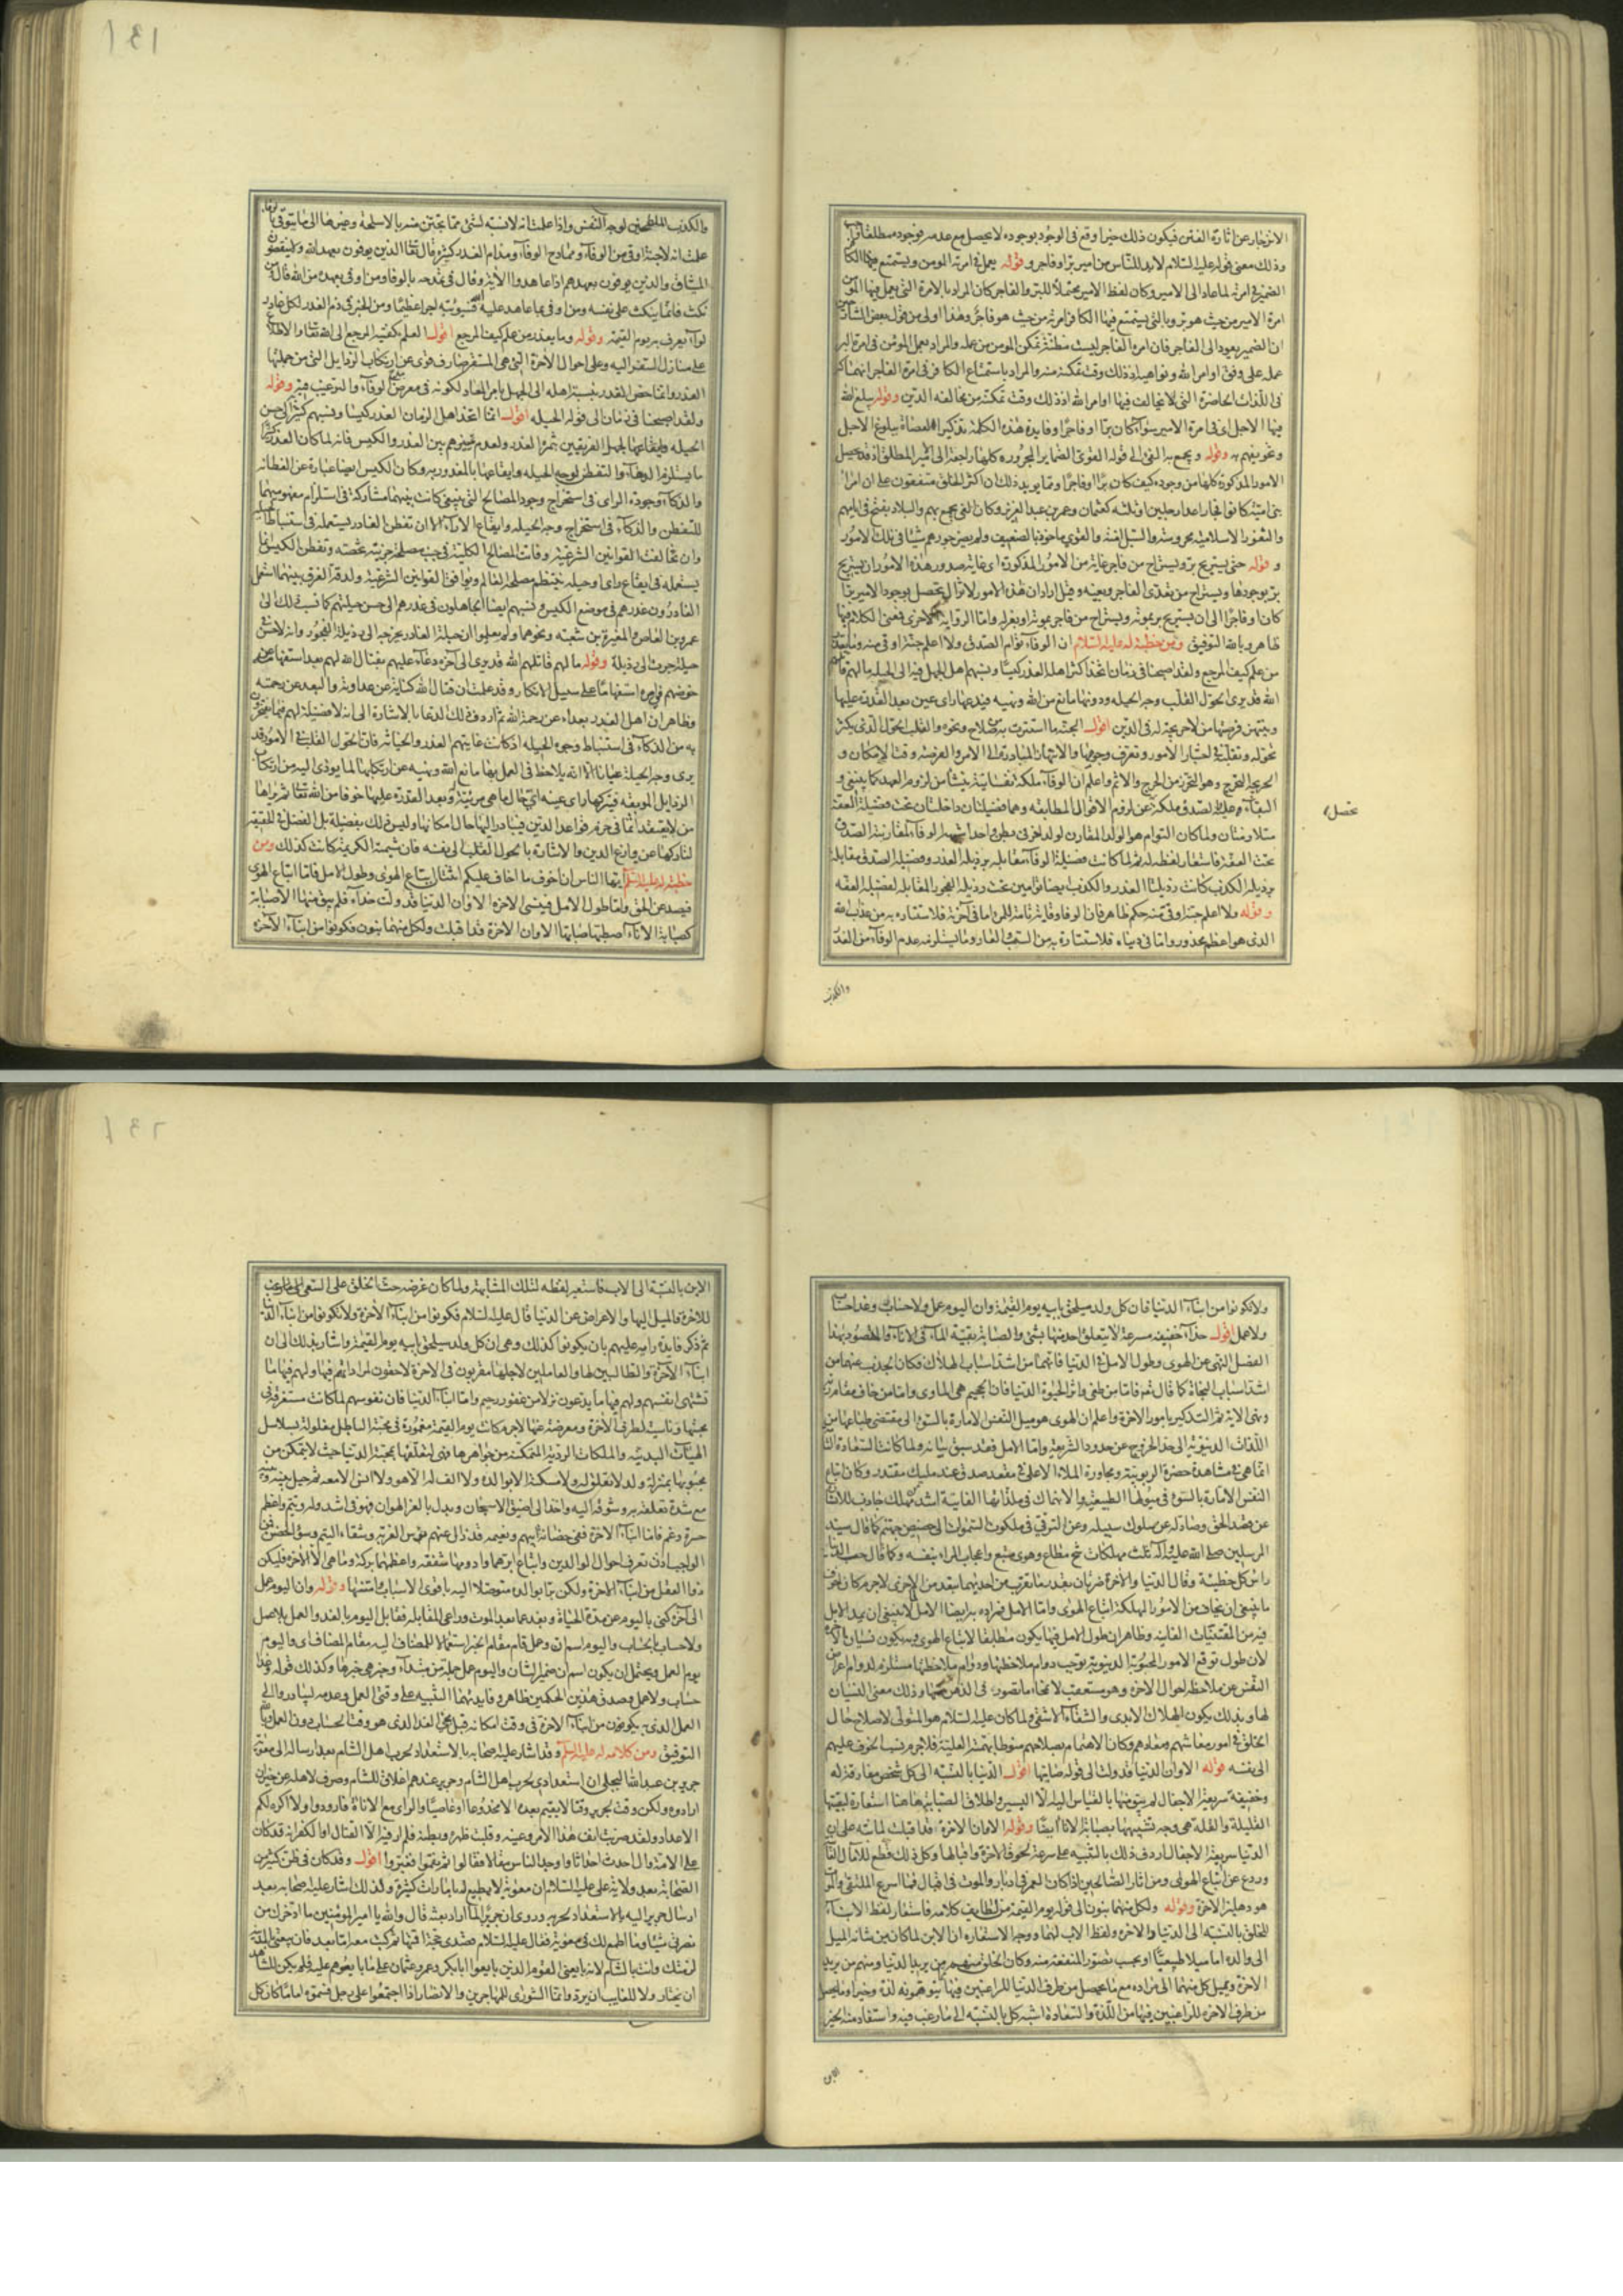 الانزجار عن اثارة الفتن فيكون ذلك خيرا وقع فى الوجود بوجوده لا يحصل مع عدمه فوجوده مطلقا
وذلك معنى قوله عليه السلام لابد للناس من امير بر او فاجر وقوله يعمل فى امرته المومن ويستمتع فيها الكافر
الضمير فى امرته لما عاد الى الامير وكان لفظ الامير محتملا للبر والفاجر كان المراد بالامرة التى يعمل فيها المومن
امرة الامير من حيث هو بر وبالتى يستمتع فيها الكافر امرته من حيث هو فاجر وهذا اولى من قول بعض الشارحين
ان الضمير يعود الى الفاجر فان امرة الفاجر ليست مظنة تمكن المومن من عمله والمراد يعمل المؤمن فى امرة البر
عمله على وفق اوامر الله ونواهيه اذ ذلك وقت تمكنه منه والمراد باستمتاع الكافر فى امرة الفاجر انهماكه
فى اللذات الحاضرة التى لا يخالف فيها اوامر الله اذ ذلك وقت تمكنه من مخالفة الدين وقوله يبلغ الله
فيها الاجل اى فى امرة الامير سواء كان برا او فاجرا وفايدة هذه الكلمة تذكير العصاة ببلوغ الاجل
وتخويفهم به وقوله ويجمع به الفئ الى قوله القوى الضماير المجرورة كلها راجعة الى الامير المطلق اذ قد يحصل
الامور المذكورة كلها من وجوده كيف كان برا او فاجرا ومما يويد ذلك ان اكثر الخلق متفقون على ان امراء
بنى امية كانوا فجارا عدا رجلين او ثلثه كعثمان وعمر بن عبد العزيز وكان الفئ يجمع بهم والبلاد يفتح فى ايامهم
والثغور الاسلامية محروسة والسبل امنة والقوى ماخوذ بالضعيف ولم يضر جورهم شيئا فى تلك الامور
وقوله حتى يستريح بر ويستراح من فاجر غاية من الامور المذكورة اى غاية صدور هذه الامور ان يستريح
بر بوجودها ويستراح من تعدى الفاجر وبغيه وقيل اراد ان هذه الامور لا تزال تحصل بوجود الامير برا
كان او فاجرا الى ان يستريح بر بموته ويستراح من فاجر بموته او بعزله واما الرواية الاخرى فمعنى الكلام فيها
ظاهر وبالله التوفيق ومن خطبة له عليه السلام ان الوفاء توأم الصدق ولا اعلم جنة اوقى منه وما يغدر
من علم كيف المرجع ولقد اصبحنا فى زمان اتخذ اكثر اهله الغدر كيسا ونسبهم اهل الجهل فيه الى الحيلة مالهم قاتلهم
الله قد يرى الحول القلب وجه الحيلة ودونها مانع من الله ونهيه فيدعها راى عين بعد القدرة عليها
وينتهز فرصتها من لا حريجة له فى الدين اقول الجنة ما استترت به من سلاح ونحوه والقلب الحول الذى يكثر
تحوله وتقلبه فى اختبار الامور وتعرف وجوهها والانتهاز المبادرة الى الامر والفرصة وقت الامكان و
الحريجة التحرج وهو التحرز من الحرج والاثم واعلم ان الوفاء ملكة نفسانية ينشأ من لزوم العهد كما ينبغى و
البقاء عليه والصدق ملكة عن لزوم الاقوال المطابقة وهما فضيلتان داخلتان تحت فضيلة العفة
متلازمتان ولما كان التوام هو الولد المقارن لولد اخر فى بطن واحد اشبهه الوفاء لمقارنته الصدق
تحت العفة فاستعار لفظه له ثم لما كانت فضيلة الوفاء مقابلة برذيلة الغدر وفضيلة الصدق مقابلة
برذيلة الكذب كانت رذيلتا الغدر والكذب ايضا توامين تحت رذيلة الفجور المقابلة لفضيلة العفة
وقوله ولا اعلم جنة اوقى منه حكم ظاهر فان الوفا وقاية تامة للمرء اما فى آخرته فلاستتاره به من عذاب الله
الذى هو اعظم محذور واما فى دنياه فلاستتاره به من السب والعار وما يستلزمه عدم الوفاء من الغدر
تحصل
والكذب
والكذب الملطخين لوجه النفس واذا علمت انه لا نسبة لشئ مما يجتن منه بالاسلحة وغيرها الى ما يتوقى بالوفاء
علمت انه لا جنة اوقى من الوفاء وممادح الوفاء ومذام الغدر كثيرة قال تعالى الذين يوفون بعهد الله ولا ينقضون
الميثاق والذين يوفون بعهدهم اذا عاهدوا الاية وقال فى تمدحه بالوفا ومن اوفى بعهده من الله قال فمن
نكث فانما ينكث على نفسه ومن اوفى بما عاهد عليه الله فسيؤتيه اجرا عظيما ومن الخبر فى ذم الغدر لكل غادر
لواء يعرف به يوم القيمة وقوله وما يغدر من علم كيف المرجع اقول العلم بكيفية المرجع الى الله تعالى والاطلاع
على منازل السفر اليه وعلى احوال الاخرة التى هى المستقر صارف قوى عن ارتكاب الرذايل التى من جملتها
الغدر وانما خص الغدر بنسبة اهله الى الجهل بامر المعاد لكونه فى معرض مدح الوفاء والترغيب فيه وقوله
ولقد اصبحنا فى زمان الى قوله الحيله اقول انما اتخذ اهل الزمان الغدر كيسا ونسبهم كثير الى حسن
الحيله وايقاعها لجهل الفريقين ثمرة الغدر ولعدم تمييزهم بين الغدر والكيس فانه لما كان الغدر كثيرا
ما يستلزم الدهاء والتفطن لوجه الحيله وايقاعها بالمغدور به وكان الكيس ايضا عبارة عن الفطانة
والذكاء وجودة الراى فى استخراج وجوه المصالح التى ينبغى كانت بينهما مشاركة فى استلزام مفهوميهما
للتفطن والذكاء فى استخراج وجه الحيله وايقاع الاراء الا ان تفطن الغادر يستعمله فى استنباط الحيله
وان خالفت القوانين الشرعية وفاتت المصالح الكلية فى جنب مصلحة جزئية تخصه وتفطن الكيس انما
يستعمله فى ايقاع راى او حيلة ينتظم مصلحة العالم ويوافق القوانين الشرعية ولدقة الفرق بينهما استعمل
الغادرون غدرهم فى موضع الكيس ونسبهم ايضا الجاهلون فى غدرهم الى حسن حيلتهم كما نسب ذلك الى
عمرو بن العاص والمغيرة بن شعبه ونحوهما ولم يعلموا ان حيلة الغادر يخرجه الى رذيلة الفجور وانه لا حسن
حيلة جرت الى رذيلة وقوله ما لهم قاتلهم الله قد يرى الى آخره دعاء عليهم بقتال الله لهم بعد استفهامه عن
خوضهم فى امره استفهاما على سبيل الانكار وقد علمت ان قتال الله كناية عن عداوته والبعد عن رحمته
وظاهر ان اهل الغدر بعداء عن رحمة الله ثم اردف ذلك الدعا بالاشارة الى انه لا فضيلة لهم فيما يفخرون
به من الذكاء فى استنباط وجوه الحيله اذ كانت غايتهم الغدر والخيانة فان الحول القلب فى الامور قد
يرى وجه الحيلة عيانا الا انه يلاحظ فى العمل بها مانع الله ونهيه عن ارتكابها لما يودى اليه من ارتكاب
الرذايل الموبقه فيتركها راى عينه اى حال ما هى مرئية له وبعد القدرة عليها خوفا من الله تعالى ثم يراها
من لا يعتقد اثما فى خرم قواعد الدين فيبادر اليها حال امكانها وليس ذلك بفضيلة بل الفضل فى الحقيقة
لتاركها عن وازع الدين والاشارة بالحول القلب الى نفسه فان شيمته الكريمة كانت كذلك ومن
خطبة له عليه السلم ايها الناس ان اخوف ما اخاف عليكم اثنتان اتباع الهوى وطول الامل فاما اتباع الهوى
فيصد عن الحق واما طول الامل فينسى الاخرة الا وان الدنيا قد ولت حذاء فلم يبق منها الا صبابة
كصبابة الاناء اصطبها صابها الا وان الاخرة قد اقبلت ولكل منهما بنون فكونوا من ابناء الآخرة
ولا تكونوا من ابناء الدنيا فان كل ولد سيلحق بابيه يوم القيمة وان اليوم عمل ولا حساب وغدا حساب
ولا عمل اقول حذاء خفيفه مسرعة لا يتعلق احد منها بشئ والصبابة بقية الماء فى الاناء والمقصود بهذا
الفصل النهى عن الهوى وطول الامل فى الدنيا فانهما من اشد اسباب الهلاك فكان الجذب عنهما من
اشد اسباب النجاة كما قال تعالى فاما من طغى واثر الحيوة الدنيا فان الجحيم هى الماوى واما من خاف مقام ربه
ونهى الاية ثم التذكير بامور الاخرة واعلم ان الهوى هو ميل النفس الامارة بالسوء الى مقتضى طباعها من
اللذات الدنيوية الى حد الخروج عن حدود الشريعة واما الامل فقد سبق بيانه ولما كانت السعادة التامة
انما هى فى مشاهدة حضرة الربوبية ومجاورة الملاء الاعلى فى مقعد صدق عند مليك مقتدر وكان اتباع
النفس الامارة بالسوء فى ميولها الطبيعية والانهماك فى ملذاتها الفانية اشد مهلك جاذب للانسان
عن قصد الحق وصاد له عن سلوك سبيله وعن الترقى فى ملكوت السموات الى حضيض جهنم كما قال سيد
المرسلين صلى الله عليه وآله ثلث مهلكات شح مطاع وهوى متبع واعجاب المراء بنفسه وكما قال حب الدنيا
راس كل خطيئة وقال الدنيا والاخرة ضرتان بقدر ما تقرب من احديهما تبعد من الاخرى لا جرم كان اخوف
ما ينبغى ان يخاف من الامور المهلكة اتباع الهوى واما الامل فمراده به ايضا الامل لما لا ينبغى ان يمد الامل
فيه من المقتنيات الفانيه وظاهر ان طول الامل فيها يكون مطابقا لاتباع الهوى وبه يكون نسيان الاخرة
لان طول توقع الامور المحبوبة الدنيوية يوجب دوام ملاحظتها ودوام ملاحظتها مستلزم لدوام اعراض
النفس عن ملاحظة احوال الاخرة وهو مستعقب لانمحاء ما تصور فى الذهن منها وذلك معنى النسيان
لها وبذلك يكون الهلاك الابدى والشقاء الاشقى ولما كان عليه السلام هو المتولى لاصلاح حال
الخلق فى امور معاشهم ومعادهم وكان الاهتمام بصلاحهم منوطا بهمته العلية فلا جرم نسب الخوف عليهم
الى نفسه قوله الا وان الدنيا قد ولت الى قوله صابها اقول الدنيا بالنسبة الى كل شخص مفارقة له
وخفيفة سريعة الاجفال لم يبق منها بالقياس اليه الا اليسير واطلاق الصبابة هاهنا استعارة لبقيتها
القليلة والقلة هى وجه تشبيهها بصبابة الاناء ايضا وقوله الا وان الاخرة قد اقبلت لما نبه على ان
الدنيا سريعة الاجفال اردف ذلك بالتنبيه على سرعة لحوق الاخرة واقبالها وكل ذلك قطع للآمال الفانية
وردع عن اتباع الهوى ومن اثار الصالحين اذا كان العمر فى ادبار والموت فى اقبال فما اسرع الملتقى والموت
هو دهليز الاخرة وقوله ولكل منهما بنون الى قوله يوم القيمة من لطايف كلامه فاستعار لفظ الابناء
للخلق بالنسبة الى الدنيا والاخرة ولفظ الاب لهما ووجه الاستعارة ان الابن لما كان من شانه الميل
الى والده اما ميلا طبيعيا او بحسب تصور المنفعة منه وكان الخلق منهم من يريد الدنيا ومنهم من يريد
الاخرة ويميل كل منهما الى مراده مع ما يحصل من طرف الدنيا للراغبين فيها مما يتوهمونه لذة وخيرا وما يحصل
من طرف الاخرة للراغبين فيها من اللذة والسعادة اشبه كل بالنسبة الى ما رغب فيه واستفاد منه الخير
الابن
الابن بالنسبة الى الاب فاستعير لفظه لتلك المشابهة ولما كان غرضه حث الخلق على السعى
للاخرة والميل اليها والاعراض عن الدنيا قال عليه السلام فكونوا من ابناء الاخرة ولا تكونوا من ابناء الدنيا
ثم ذكر فايدة رايه عليهم بان يكونوا كذلك وهى ان كل ولد سيلحق بابيه يوم القيمة واشار بذلك الى ان
ابناء الآخرة والطالبين لها والعاملين لاجلها مقربون فى الاخرة لاحقون لمراداتهم فيها ولهم فيها ما
تشتهى انفسهم ولهم فيها ما يدعون نزلا من غفور رحيم واما ابناء الدنيا فان نفوسهم لما كانت مستغرقة فى
محبتها وناسية لطرف الآخرة ومعرضة عنها لا جرم كانت يوم القيمة مغمورة فى محبة الباطل مغلولة بسلاسل
الهيئات البدنيه والملكات الردية المتمكنة من جواهرها فهى لتعلقها بمحبة الدنيا حيث لا يتمكن من
محبوبها بمنزلة ولد لا تعلق له ولا مسكة الا بوالده ولا الف له الا هو ولا انس الا معه ثم حيل بينه وبينه
مع شدة تعلقه به وشوقه اليه واخذ الى اضيق الاسجان وبدل بالعز الهوان فهو فى اشد وله ويتم واعظم
حسرة وغم واما ابناء الاخرة ففى حضانة ابيهم ونعيمه قد زال عنهم بؤس الغربة وشقاء اليتم وسوء الحضن فمن
الواجب اذن تعرف احوال الوالدين واتباع ابرهما وادومهما شفقه واعظمهما بركة وما هى الا الآخرة فليكن
ذو العقل من ابناء الآخرة وليكن برا بوالده متوصلا اليه باقوى الاسباب وامتنها وقوله وان اليوم عمل
الى آخره كنى باليوم عن مدة الحياة وبغد عما بعد الموت وراعى المقابلة فقابل اليوم بالغد والعمل بلا عمل
ولا حساب بالحساب واليوم اسم ان وعمل قام مقام الخبر استعمالا للمضاف اليه مقام المضاف اى واليوم
يوم العمل ويحتمل ان يكون اسم ان ضمير الشان واليوم عمل جملة من مبتداء وخبر هى خبرها وكذلك قوله وغدا
حساب ولا عمل وصدق هذين الحكمين ظاهر وفايدتهما التنبيه على وقتى العمل وعدمه ليبادروا الى
العمل الذى به يكونون من ابناء الآخرة فى وقت امكانه قبل مجئ الغد الذى هو وقت الحساب دون العمل وبالله
التوفيق ومن كلام له عليه السلم وقد اشار عليه اصحابه بالاستعداد لحرب اهل الشام بعد ارساله الى معوية
جرير بن عبد الله البجلى ان استعدادى لحرب اهل الشام وجرير عندهم اغلاق للشام وصرف لاهله عن خير ان
ارادوه ولكن وقت لجرير وقتا لا يقيم بعده الا مخدوعا او عاصيا والراى مع الاناة فارودوا ولا اكره لكم
الاعداد ولقد ضربت انف هذا الامر وعينه وقلبت ظهره وبطنه فلم ار فيه الا القتال او الكفر انه قد كان
على الامة وال احدث احداثا واوجد الناس مقالا فقالوا ثم نقموا فغيروا اقول وقد كان فى ظن كثير من
الصحابة بعد ولاية على عليه السلام ان معوية لا يطيع له بامارات كثيرة ولذلك اشار عليه اصحابه بعد
ارسال جرير اليه بالاستعداد لحربه وروى ان جريرا لما اراد بعثه قال والله يا امير المومنين ما ادخرك من
نصرتى شيئا وما اطمع لك فى معوية فقال عليه السلام قصدى حجة اقيمها ثم كتب معه اما بعد فان بيعتى بالمدينة
لزمتك وانت بالشام لانه بايعنى القوم الذين بايعوا ابا بكر وعمر وعثمان على ما بايعوهم عليه فلم يكن للشاهد
ان يختار ولا للغايب ان يرد وانما الشورى للمهاجرين والانصار اذا اجتمعوا على رجل فسموه اماما كان كل